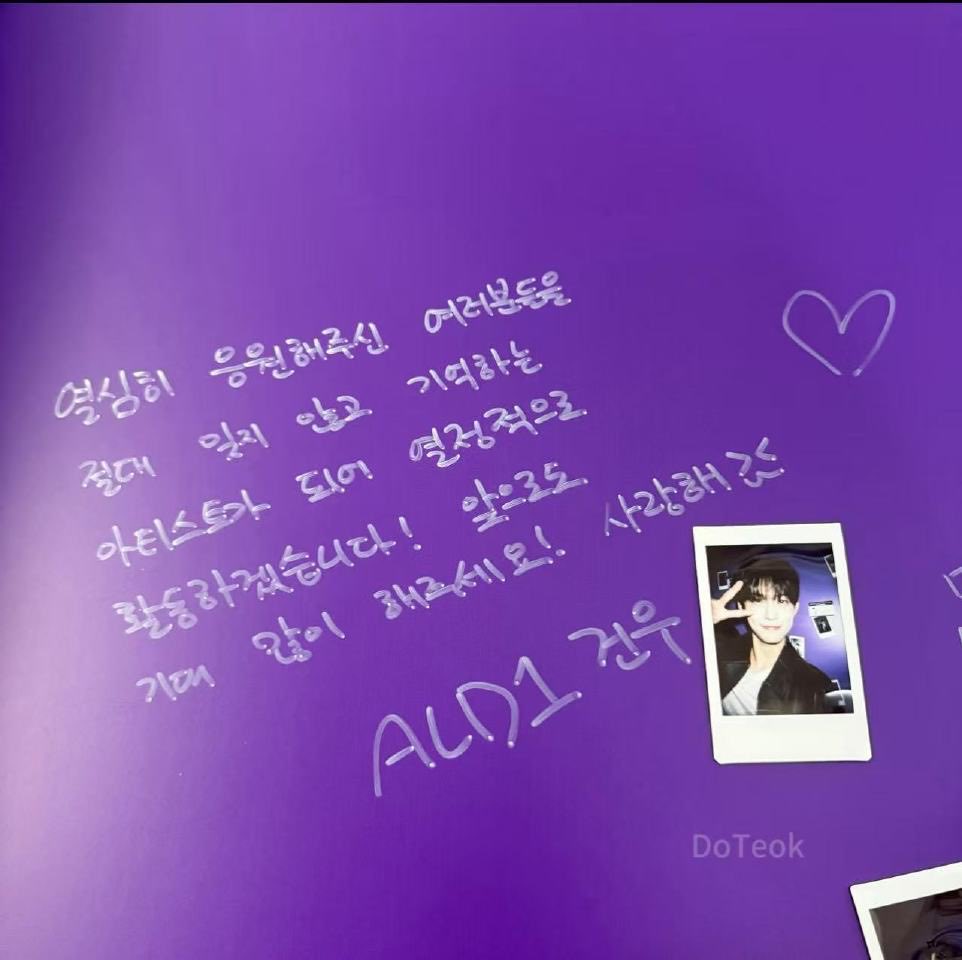 열심히 응원해주신 여러분들을
절대 잊지 않고 기억하는
아티스트가 되어 열정적으로
활동하겠습니다! 앞으로도
기대 많이 해주세요! 사랑해
ALD1 건우
DoTeok